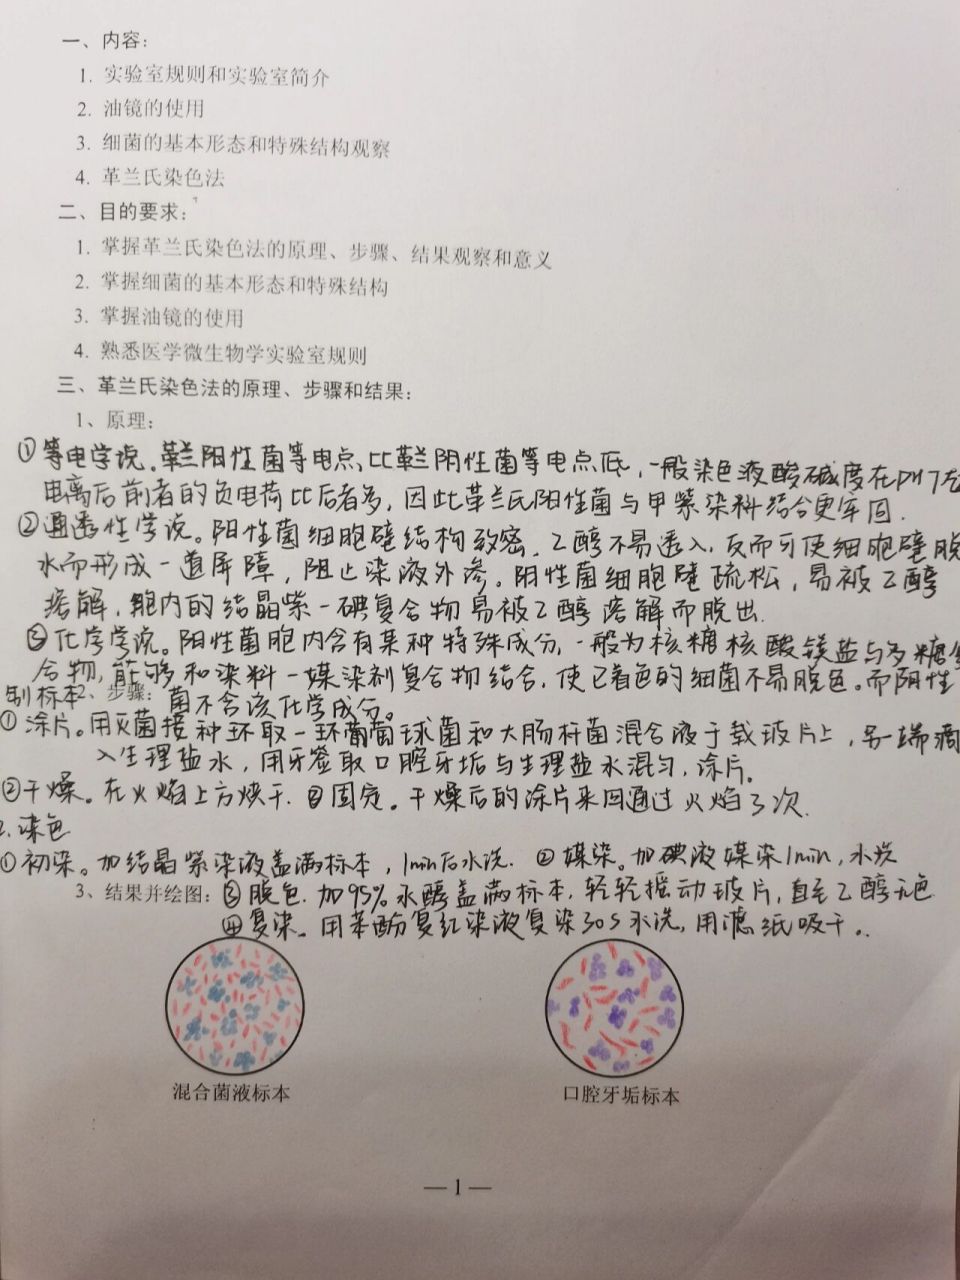 一、内容:
1. 实验室规则和实验室简介
2. 油镜的使用
3. 细菌的基本形态和特殊结构观察
4. 革兰氏染色法
二、目的要求:
1. 掌握革兰氏染色法的原理、步骤、结果观察和意义
2. 掌握细菌的基本形态和特殊结构
3. 掌握油镜的使用
4. 熟悉医学微生物学实验室规则
三、革兰氏染色法的原理、步骤和结果:
1、原理:
①等电学说。革兰阳性菌等电点比革兰阴性菌等电点低,一般染色液酸碱度在PH7左
电离后前者的负电荷比后者多,因此革兰氏阳性菌与甲紫染料结合更牢固.
②通透性学说。阳性菌细胞壁结构致密.乙醇不易透入,反而可使细胞壁脱
水而形成一道屏障,阻止染液外渗。阴性菌细胞壁疏松,易被乙醇
溶解,胞内的结晶紫一碘复合物易被乙醇溶解而脱出.
③化学学说。阳性菌胞内含有某种特殊成分,一般为核糖核酸镁盐与多糖
合物,能够和染料一媒染剂复合物结合,使已着色的细菌不易脱色。而阴性
制标本 2、步骤: 菌不含该化学成分。
①涂片。用灭菌接种环取一环葡萄球菌和大肠杆菌混合液于载玻片上,另一端滴
入生理盐水,用牙签取口腔牙垢与生理盐水混匀,涂片。
②干燥。在火焰上方烘干.③固定。干燥后的涂片来回通过火焰3次.
2.染色
①初染。加结晶紫染液盖满标本,1min后水洗. ②媒染。加碘液媒染1min,水洗
3、结果并绘图: ③脱色.加95%水醇盖满标本,轻轻摇动玻片,直至乙醇无色
④复染。用苯酚复红染液复染30s水洗,用滤纸吸干。
混合菌液标本
口腔牙垢标本
— 1 —